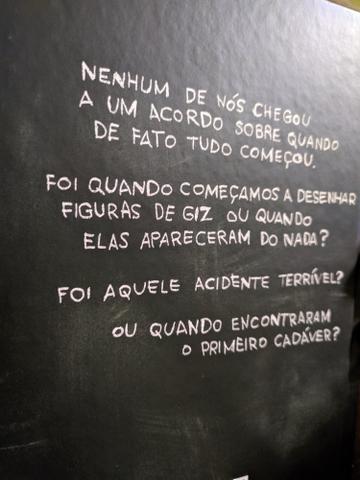 NENHUM DE NÓS CHEGOU
A UM ACORDO SOBRE QUANDO
DE FATO TUDO COMEÇOU.
FOI QUANDO COMEÇAMOS A DESENHAR
FIGURAS DE GIZ OU QUANDO
ELAS APARECERAM DO NADA?
FOI AQUELE ACIDENTE TERRÍVEL?
OU QUANDO ENCONTRARAM
O PRIMEIRO CADÁVER?